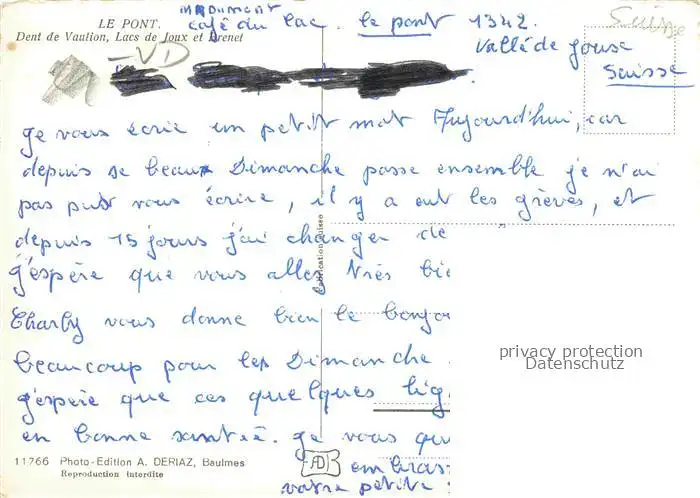 maDUmant
LE PONT.
café du lac. le pont 1342.
Dent de Vaulion, Lacs de Joux et Brenet
Suisse
Vallé de Jouse
Suisse
VD
je vous écrie um petit mot Aujourd'hui, car
depuis se beaux Dimanche passe ensemble je n'ai
pas put vous écrire, il y a eut les grèves, et
depuis 15 jours j'ai changer de
j'espère que vous allez très bie
Charly vous donne bien le bonjo
beaucoup pour les Dimanche
j'espère que ces quelques lig
en bonne santée. je vous qu
embras
votre petite
Fabrication suisse
11766 Photo-Edition A. DERIAZ, Baulmes
Reproduction interdite
AD
privacy protection
Datenschutz